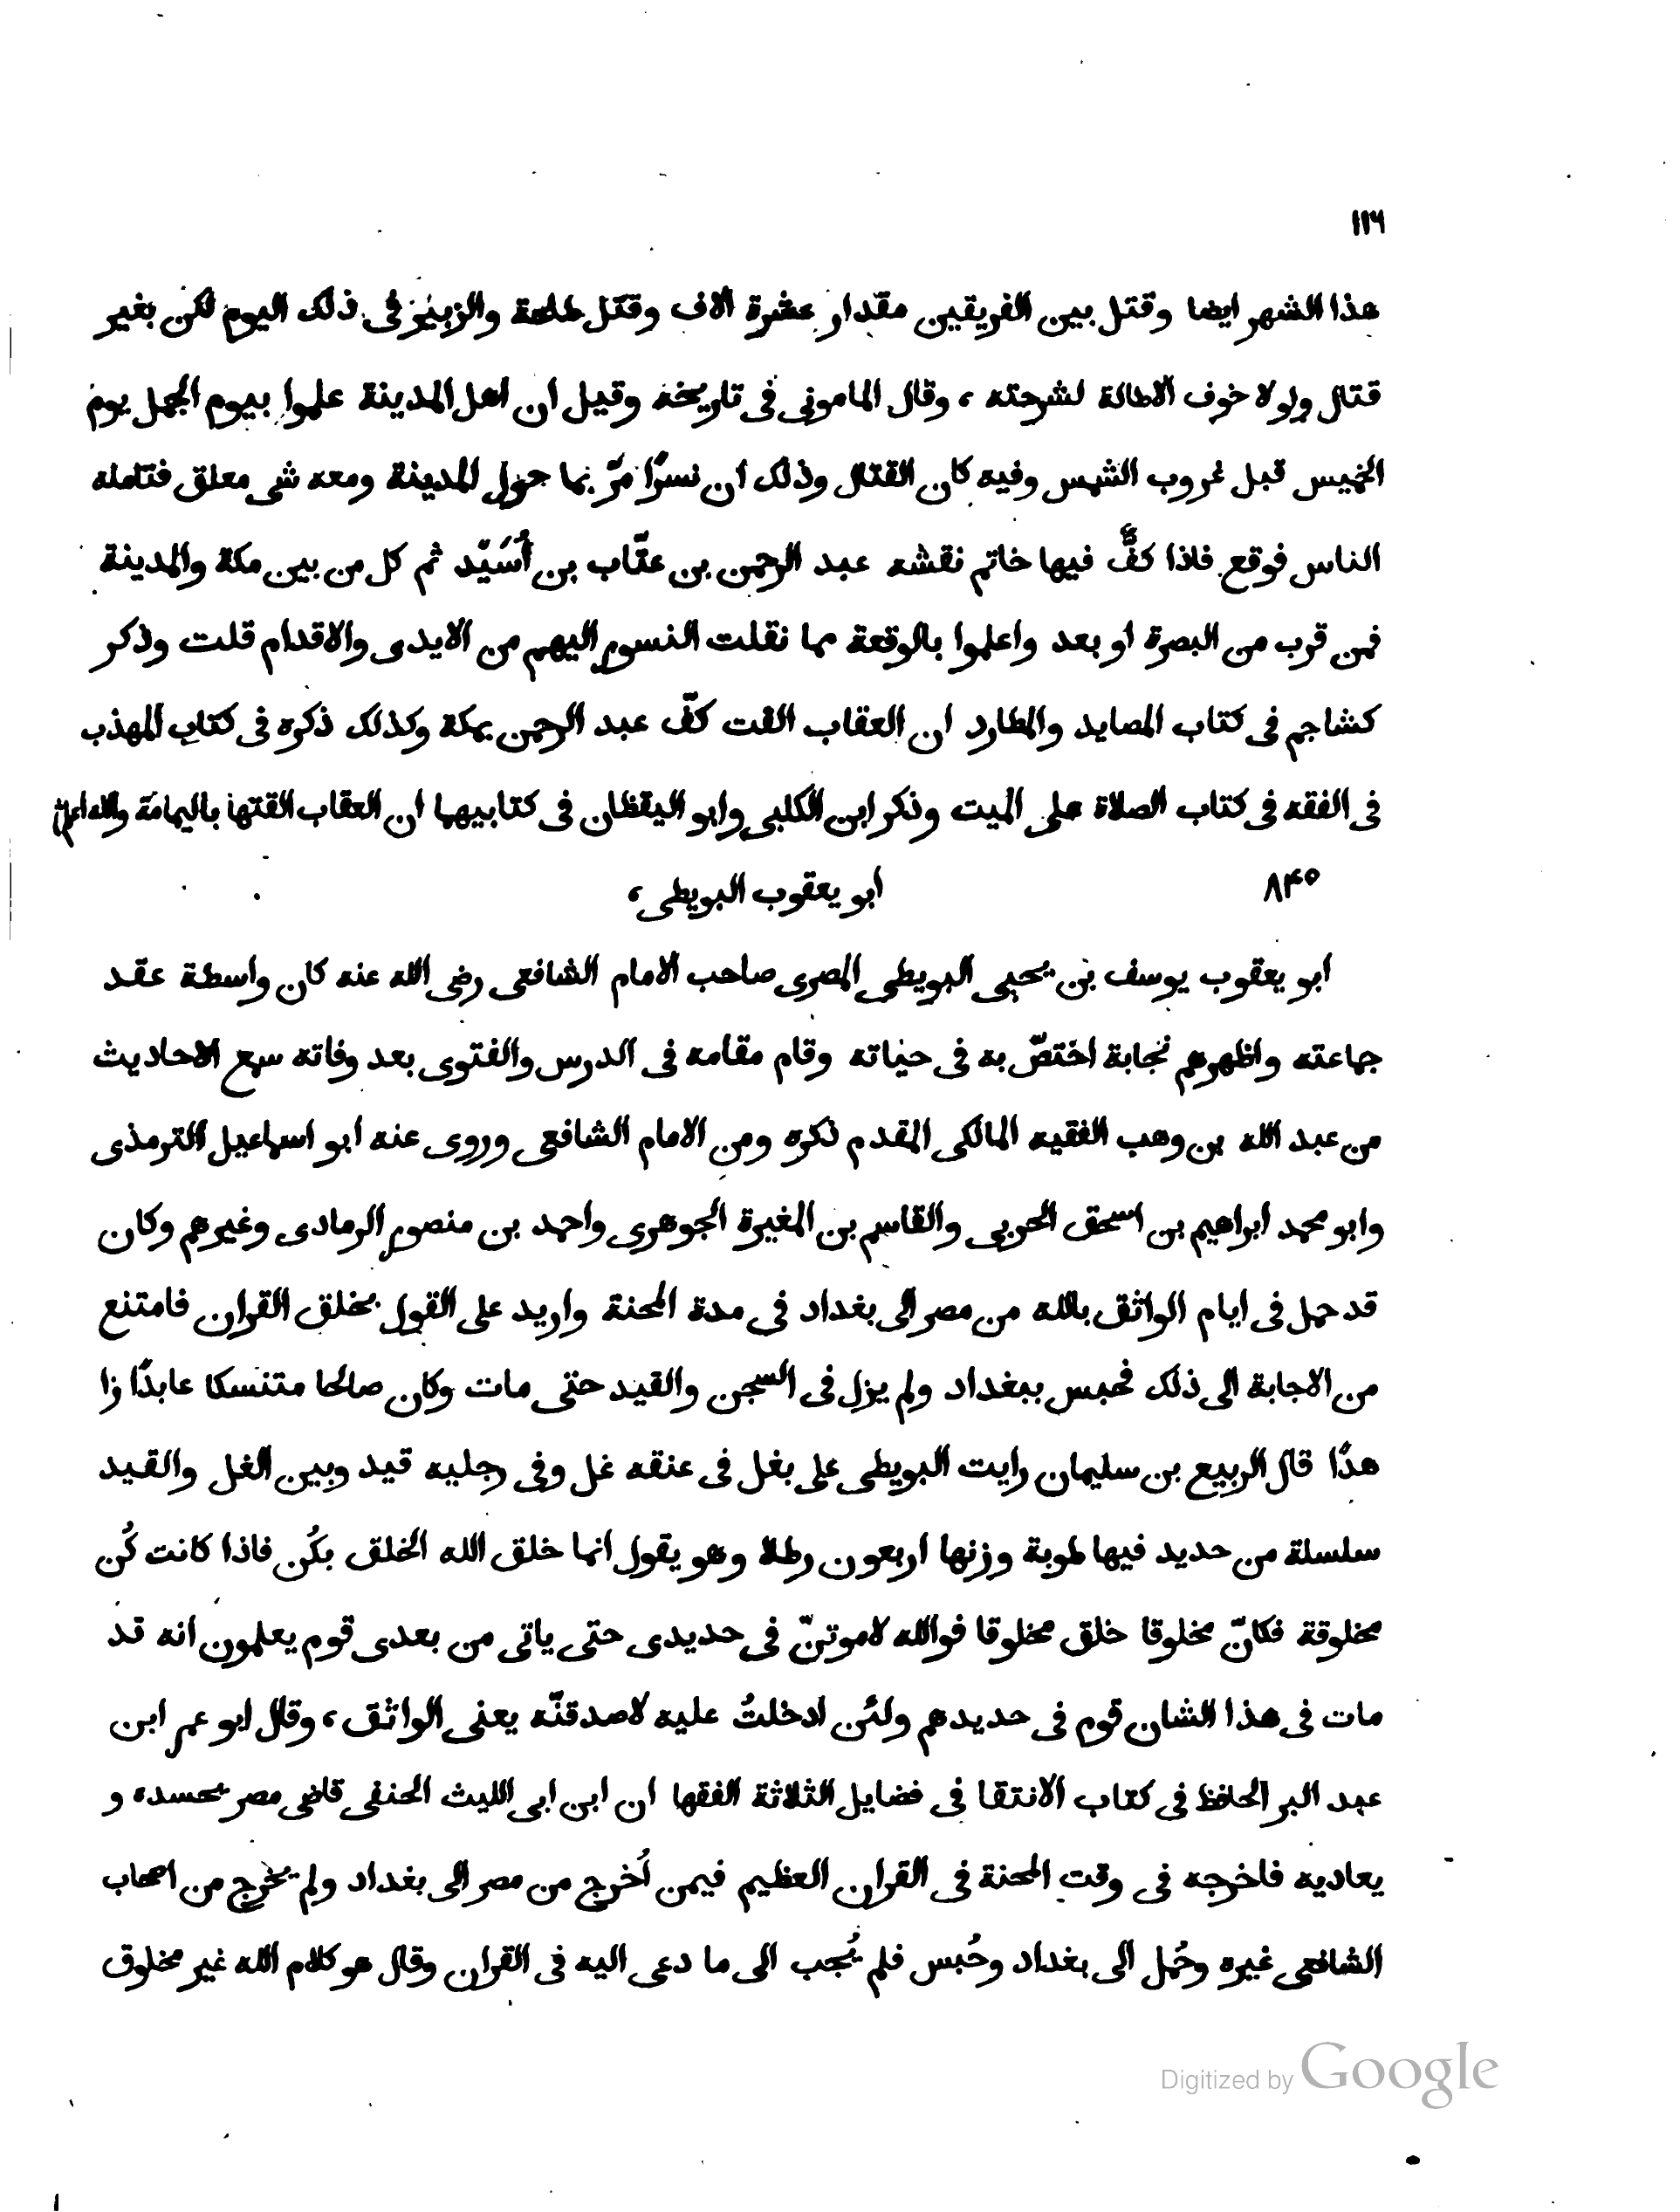 ١١٦
هذا الشهر ايضا وقتل بين الفريقين مقدار عشرة الاف وقتل طلحة والزبير فى ذلك اليوم لكن بغير
قتال ولولا خوف الاطالة لشرحته ، وقال المامونى فى تاريخه وقيل ان اهل المدينة علموا بيوم الجمل يوم
الخميس قبل غروب الشمس وفيه كان القتال وذلك ان نسرًا مرّ بما حول المدينة ومعه شى معلق فتامله
الناس فوقع فاذا كفٌّ فيها خاتم نقشه عبد الرحمن بن عتّاب بن أُسَيّد ثم كل من بين مكة والمدينة
فمن قرب من البصرة او بعد واعلموا بالوقعة مما نقلت النسور اليهم من الايدى والاقدام قلت وذكر
كشاجم فى كتاب المصايد والمطارد ان العقاب القت كفّ عبد الرحمن بمكة وكذلك ذكره فى كتاب المهذب
فى الفقه فى كتاب الصلاة على الميت وذكر ابن الكلبى وابو اليقظان فى كتابيهما ان العقاب القتها باليمامة والله اعلم
٨٤٥
ابو يعقوب البويطى ،
ابو يعقوب يوسف بن يحيى البويطى المصرى صاحب الامام الشافعى رضى الله عنه كان واسطة عقد
جماعته واظهرهم نجابة اختصّ به فى حياته وقام مقامه فى الدرس والفتوى بعد وفاته سمع الاحاديث
من عبد الله بن وهب الفقيه المالكى المقدم ذكره ومن الامام الشافعى وروى عنه ابو اسماعيل الترمذى
وابو محمد ابراهيم بن اسحق الحربى والقاسم بن المغيرة الجوهرى واحمد بن منصور الرمادى وغيرهم وكان
قد حمل فى ايام الواثق بالله من مصر الى بغداد فى مدة المحنة واريد على القول بخلق القران فامتنع
من الاجابة الى ذلك فحبس ببغداد ولم يزل فى السجن والقيد حتى مات وكان صالحا متنسكا عابدًا زا
هدًا قال الربيع بن سليمان رايت البويطى على بغل فى عنقه غل وفى رجليه قيد وبين الغل والقيد
سلسلة من حديد فيها طوبة وزنها اربعون رطلا وهو يقول انما خلق الله الخلق بكُن فاذا كانت كُن
مخلوقة فكانّ مخلوقا خلق مخلوقا فوالله لاموتنّ فى حديدى حتى ياتى من بعدى قوم يعلمون انه قد
مات فى هذا الشان قوم فى حديدهم ولئن ادخلتُ عليه لاصدقنّه يعنى الواثق ، وقال ابو عمر ابن
عبد البر الحافظ فى كتاب الانتقا فى فضايل الثلاثة الفقها ان ابن ابى الليث الحنفى قاضى مصر يحسده و
يعاديه فاخرجه فى وقت المحنة فى القران العظيم فيمن اُخرج من مصر الى بغداد ولم يخرج من اصحاب
الشافعى غيره وحُمل الى بغداد وحُبس فلم يُجب الى ما دعى اليه فى القران وقال هو كلام الله غير مخلوق
Digitized by Google